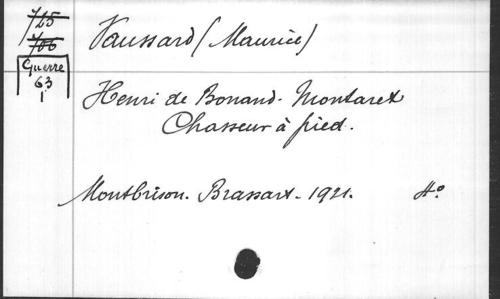 725
706
Guerre
63
1
Vaussard (Maurice)
Henri de Bonand-Montaret
Chasseur à pied.
Montbrison. Brassart - 1921. 4°